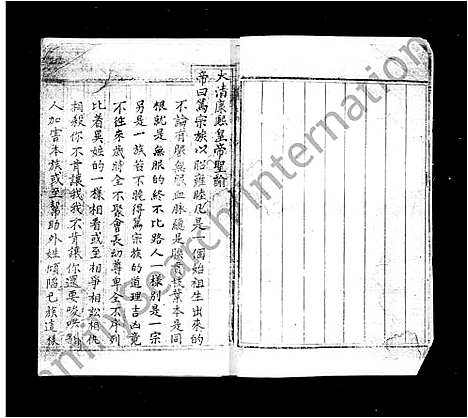 大清康熙皇帝聖諭
帝曰篤宗族以昭雍睦凡是一個始祖生出來的
不論有服無服血脈總是關枝葉本是同
根就是無服的終不比路人一樣別是一宗
另是一族若不曉得篤宗族的道理吉凶竟
不往來歲時全不聚會長幼尊卑全不序列
比着異姓的一樣相看或至相爭相訟相仇
相殺你不肯讓我我不肯讓你還要唆哄
人加害本族或至幫助外姓傾陷己族這樣
familysearch international